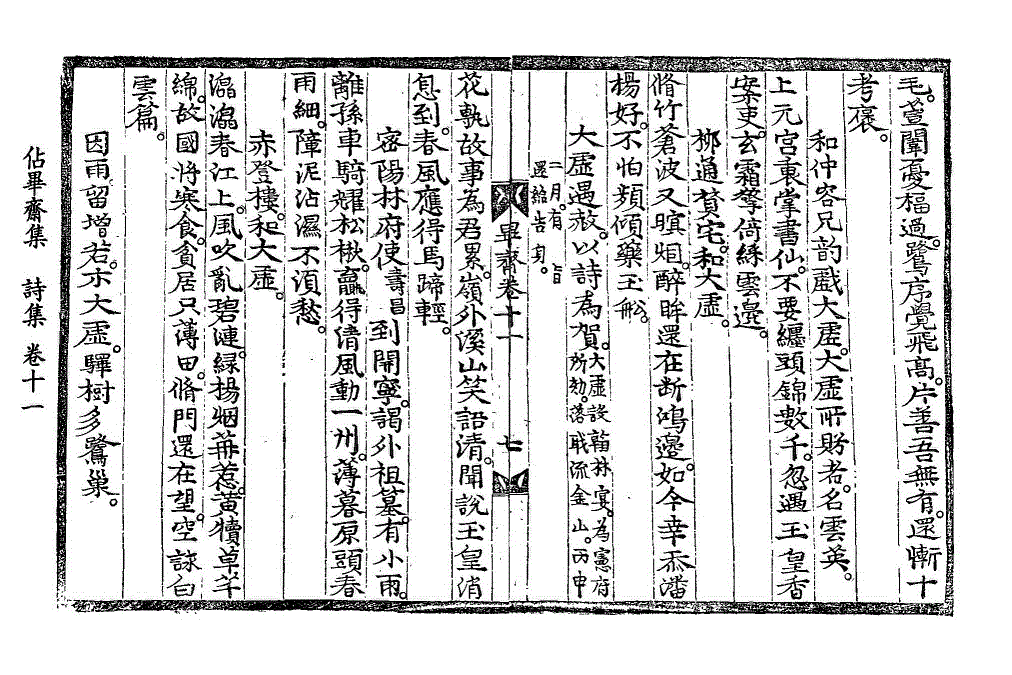 毛。萱闈憂樞過。鷺序覺飛高。片善吾無有。還慚十
考褒。
和仲容兄韵戲大虛。大虛所盼者。名雲英。
上元宮東掌書仙。不要纏頭錦數千。忽遇玉皇香
案吏。玄霜擎倚絳雲邊。
柳通贊宅。和大虛。
脩竹蒼波又暝烟。醉眸還在断鴻邊。如今幸忝潘
楊好。不怕頻傾藥玉船。
大虛遇赦。以詩為賀。大虛設翰林宴。為憲府
所劾。落職流金山。丙申
二月。有旨
還給告身。
畢齋卷十一 七
花執故事為君累。嶺外溪山笑語清。聞說玉皇消
息到。春風應得馬蹄輕。
密陽林府使壽昌到開寧。謁外祖墓。有小雨。
離孫車騎耀松楸。贏得淸風動一州。薄暮原頭春
雨細。障泥沾濕不湏愁。
赤登樓。和大虛。
瀛瀛春江上。風吹亂碧漣。緑楊烟苒惹。黃犢草芊
綿。故國將寒食。貧居只薄田。脩門還在望。空詠白
雲篇。
因雨留增若。示大虛。驛樹多鷺巢。
佔畢齋集 詩集 卷十一